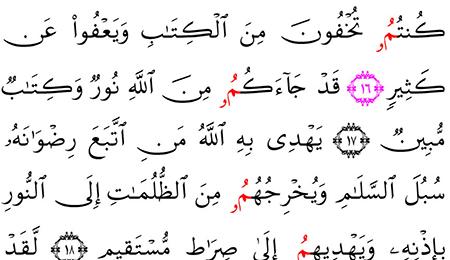 كُنتُمُۥ تُخْفُونَ مِنَ ٱلْكِتَٰبِ وَيَعْفُوا۟ عَن
كَثِيرٍ ۝١٦ قَدْ جَآءَكُمُۥ مِنَ ٱللَّهِ نُورٌ وَكِتَٰبٌ
مُّبِينٌ ۝١٧ يَهْدِى بِهِ ٱللَّهُ مَنِ ٱتَّبَعَ رِضْوَٰنَهُۥ
سُبُلَ ٱلسَّلَٰمِ وَيُخْرِجُهُمُۥ مِنَ ٱلظُّلُمَٰتِ إِلَى ٱلنُّورِ
بِإِذْنِهِۦ وَيَهْدِيهِمُۥ إِلَىٰ صِرَٰطٍ مُّسْتَقِيمٍ ۝١٨ لَّقَدْ